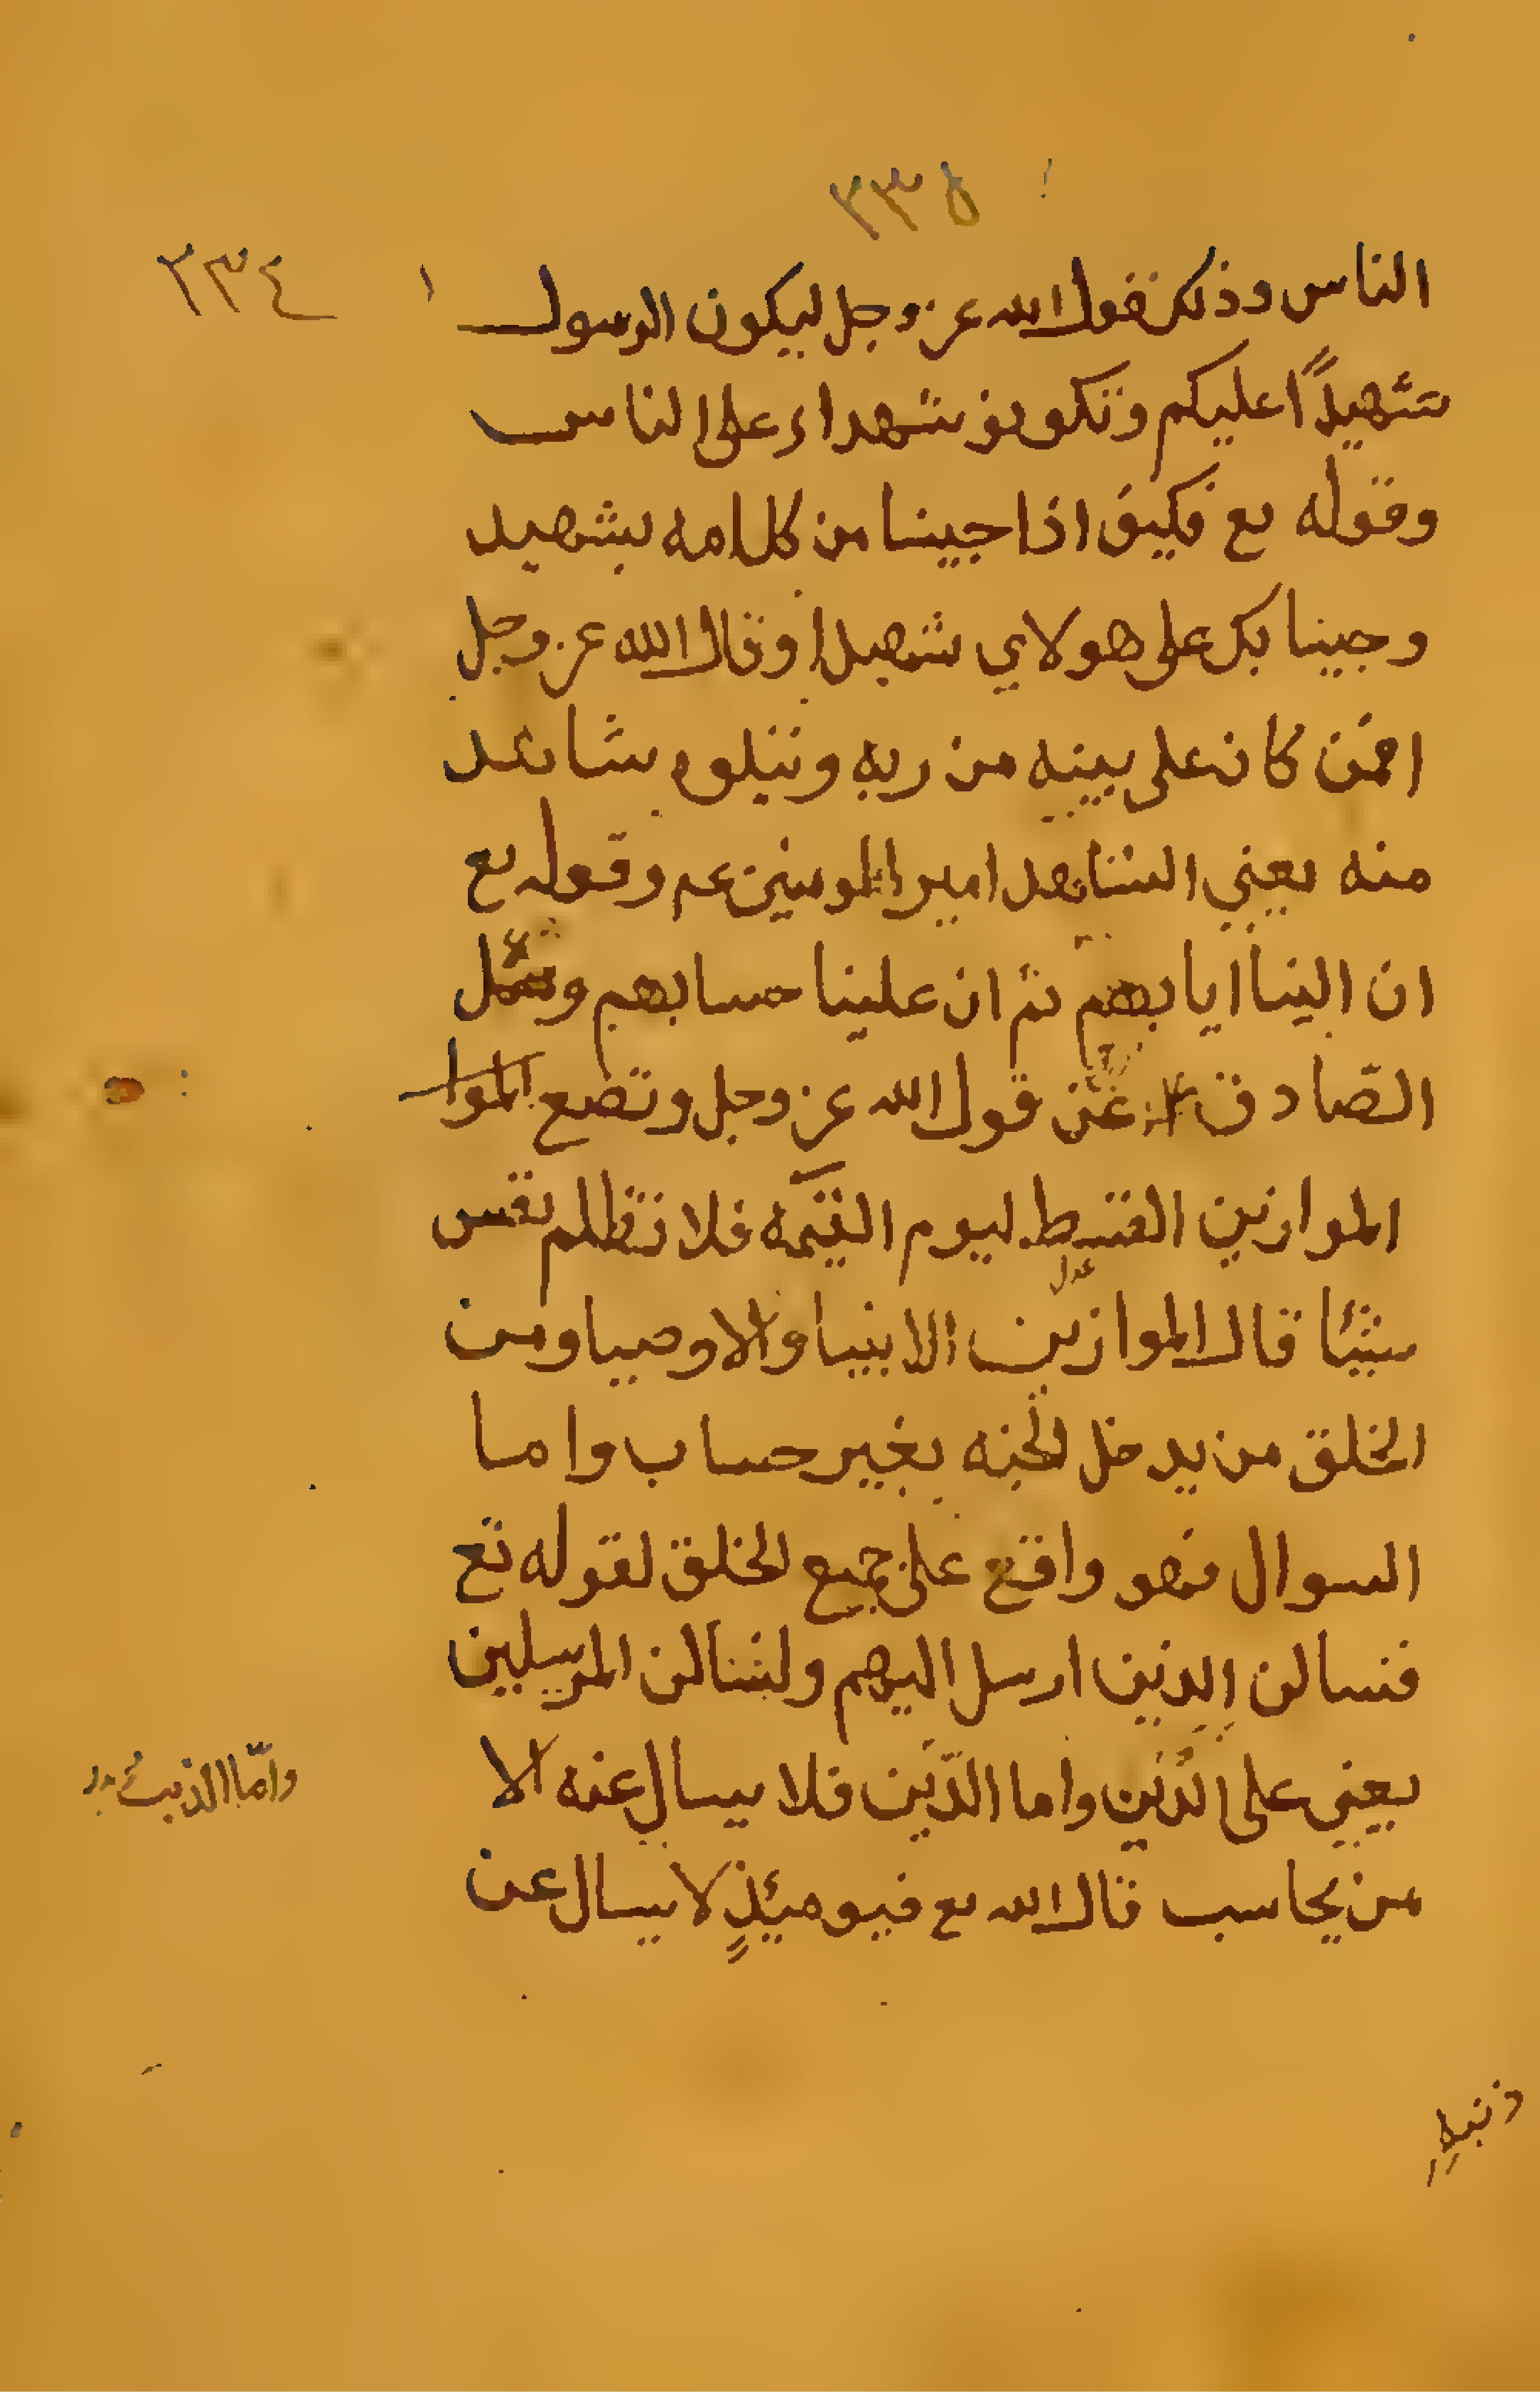 ٢٣٥
٢٣٤
الناس وذلك قول الله عز وجل ليكون الرسول
شهيدًا عليكم وتكونو شهداء على الناس
وقوله تع فكيف اذا جينا من كل امه بشهيد
وجينا بك على هولاي شهيدا وقال الله عز وجل
افمن كان على بينه من ربه ويتلوه شاهد
منه يعني الشاهد امير المومنين عم وقوله تع
ان الينا ايابهم ثم ان علينا حسابهم وسئل
الصّادق عن قول الله عز وجل وتضع الموا
الموازين القسط ليوم القيمه فلا تظلم نفس
عدل
شيئا قال الموازين الانبياء والاوصيا ومن
الخلق من يدخل الجنه بغير حساب واما
السوال فهو واقع على جميع الخلق لقوله تع
فنسالن الذين ارسل اليهم ولنسالن المرسلين
يعني على الدّين واما الدّين فلا يسال عنه الا
وامّا الذنب
من يحاسب قال الله تع فيوميئذٍ لا يسال عن
ذنبه